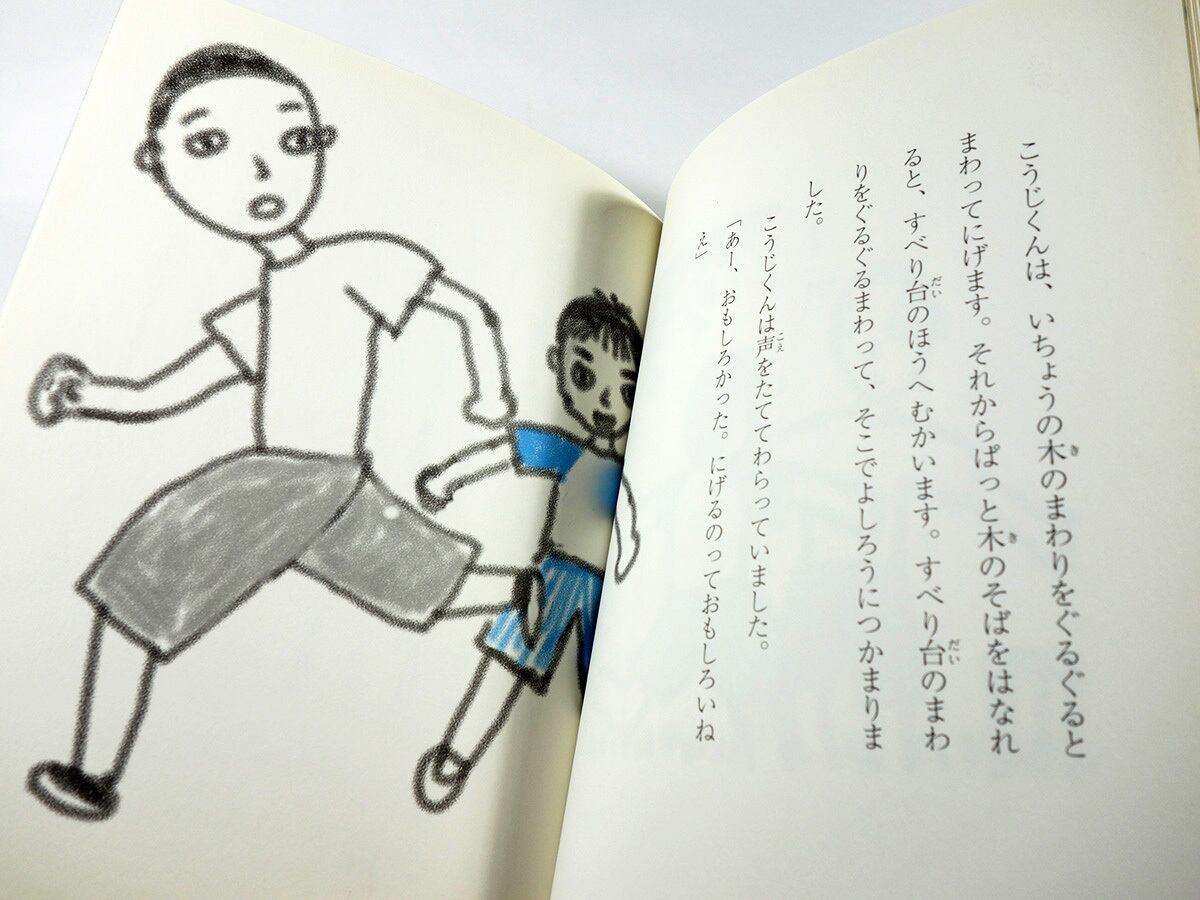 こうじくんは、いちょうの木のまわりをぐるぐると
まわってにげます。それからぱっと木のそばをはなれ
ると、すべり台のほうへむかいます。すべり台のまわ
りをぐるぐるまわって、そこでよしろうにつかまりま
した。
こうじくんは声をたててわらっていました。
「あー、おもしろかった。にげるのっておもしろいね
え」